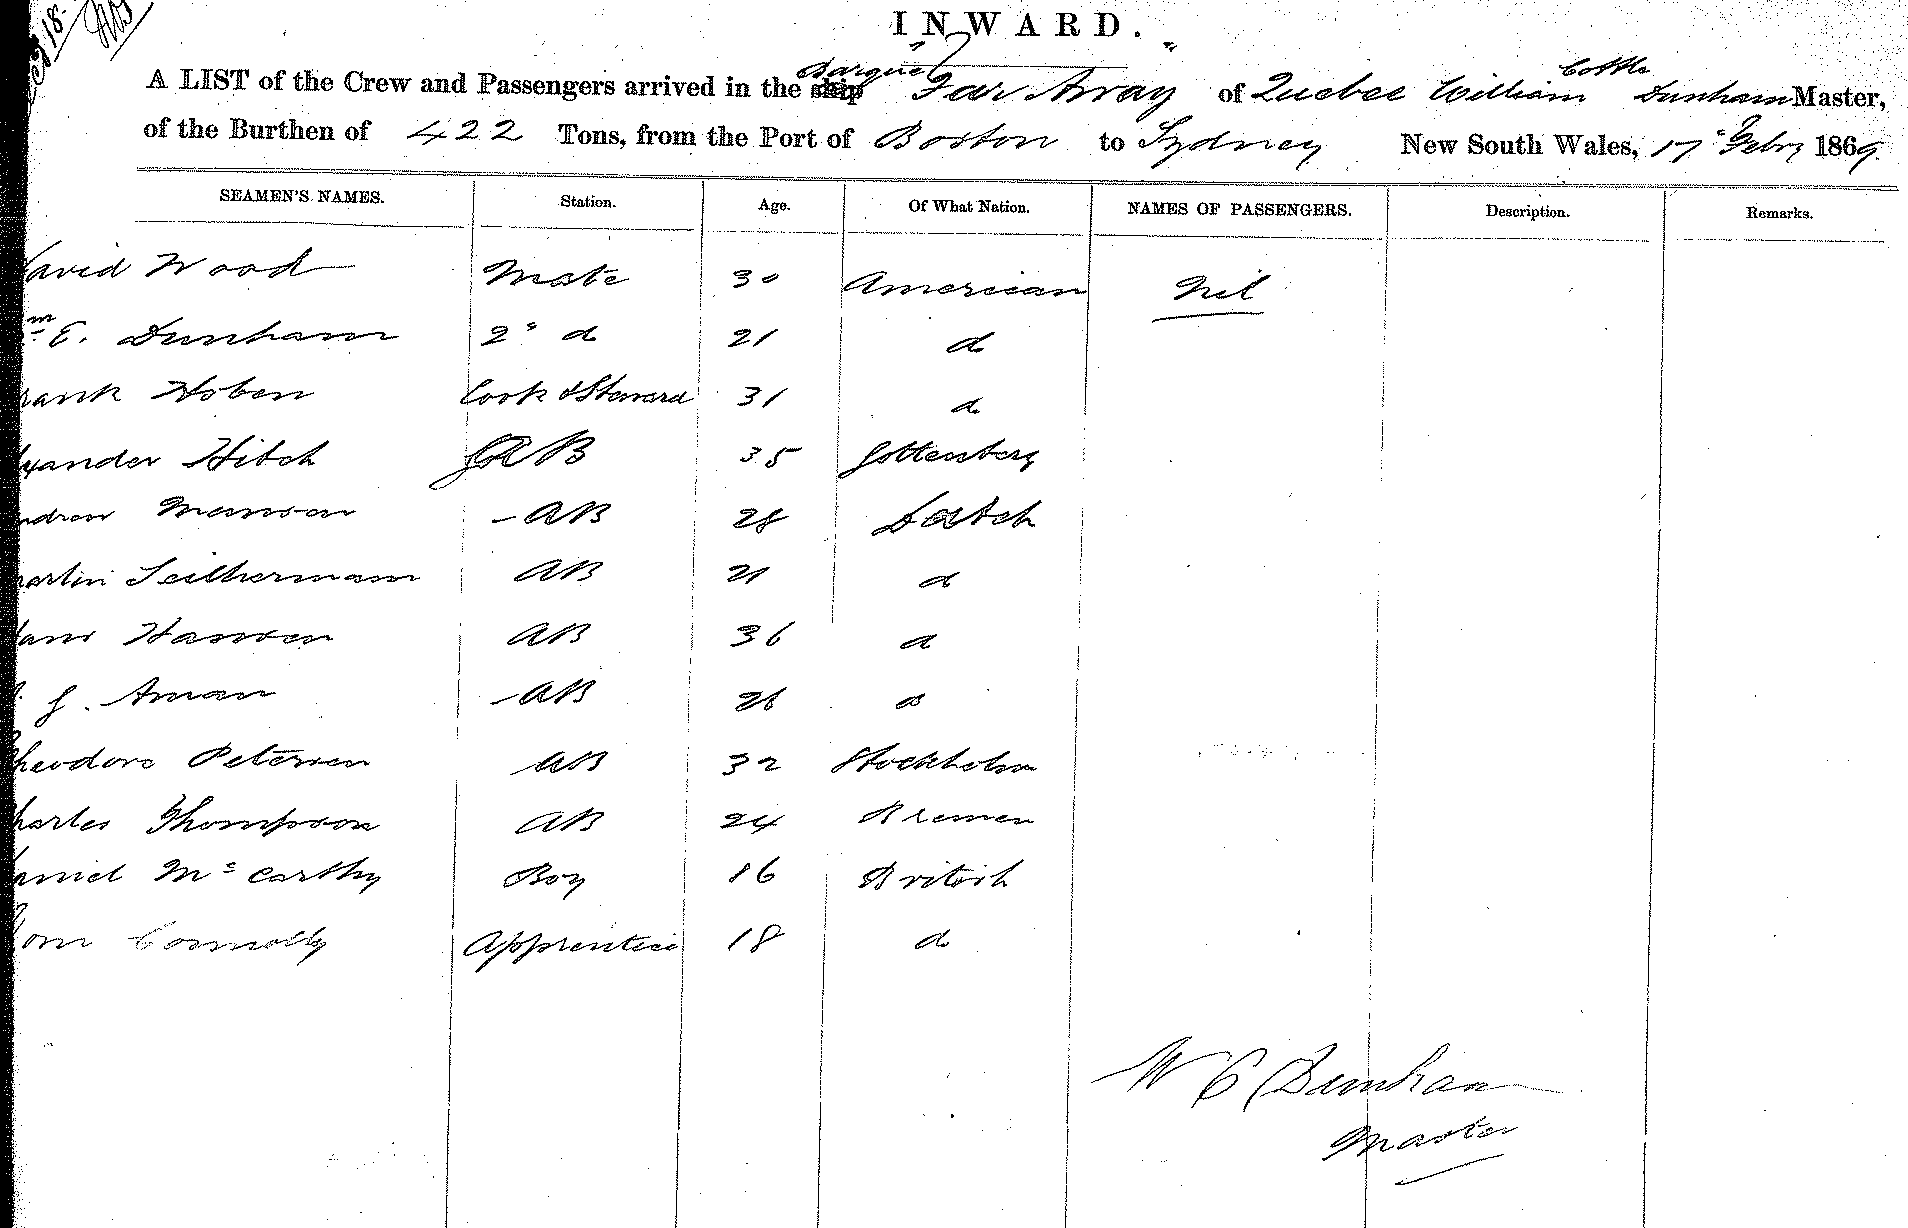 INWARD.
A LIST of the Crew and Passengers arrived in the Barque ship "Far Away" of Quebec William Cottle Dunham Master,
of the Burthen of 422 Tons, from the Port of Boston to Sydney New South Wales, 17 Feby 1869
SEAMEN'S NAMES. Station. Age. Of What Nation. NAMES OF PASSENGERS. Description. Remarks.
David Wood Mate 30 American Nil
Wm E. Dunham 2d do 21 do
Frank Hoben Cook & Steward 31 do
Alexander Hitch AB 35 Gottenberg
Andrew Manson AB 28 Datch
Martin AB 21 d
Hans Hansen AB 36 d
G. Aman AB 26 d
Theodore Petersen AB 32 Stockholm
Charles Thompson AB 24 Bremen
Daniel McCarthy Boy 16 British
Connolly Apprentice 18 d
W C Dunham
Master